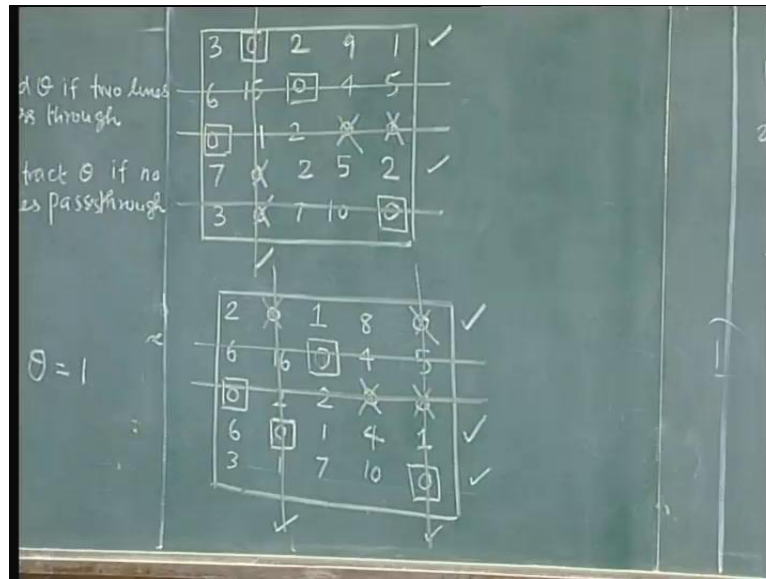 d θ if two lines
ss through
tract θ if no
es passsthrough
3 0 2 9 1 ✓
6 15 0 4 5
0 1 2 0 0
7 0 2 5 2 ✓
3 0 7 10 0
✓
θ = 1
2 0 1 8 0 ✓
6 16 0 4 5
0 2 2 0 0
6 0 1 4 1 ✓
3 1 7 10 0 ✓
✓ ✓